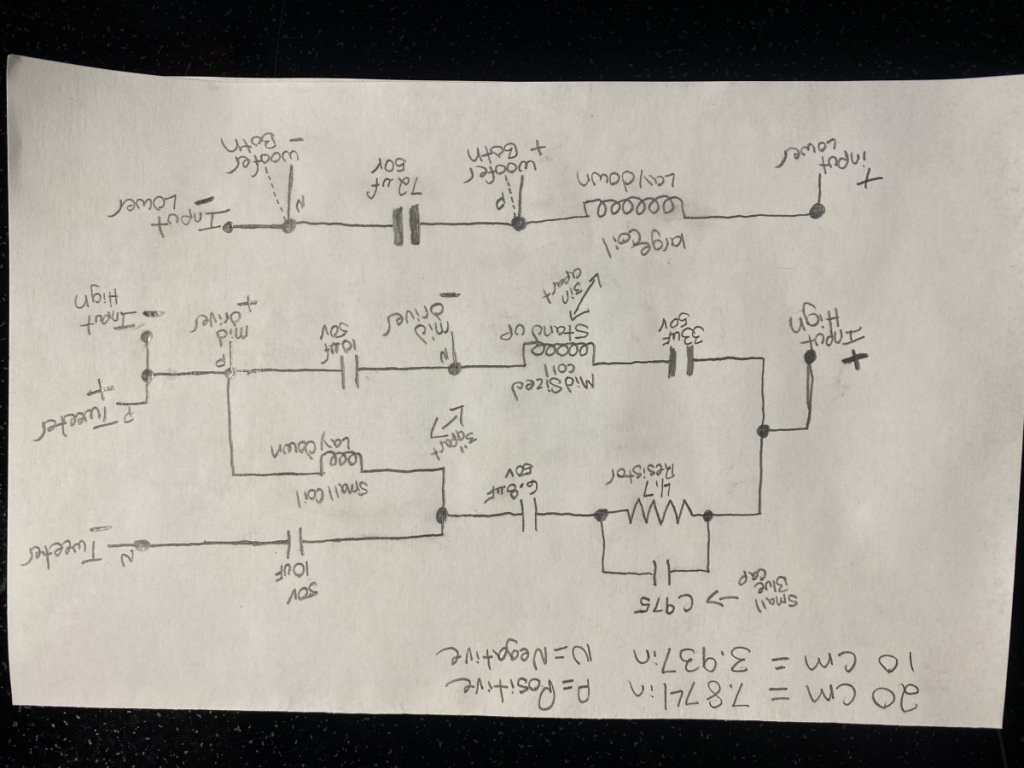 20 cm = 7.874in P=Positive
10 cm = 3.937in N=Negative
Small
Blue
Cap
→ C975
50V
10uF
N
Tweeter
−
4.7
Resistor
6.8uF
50V
Small Coil
Lay down
3"
apart
P Tweeter
+
+
Input
High
33uF
50V
Mid Sized
coil
Stand up
3in
apart
N
mid
driver
−
10uF
50V
P
mid
driver
+
− Input
High
large coil
Lay down
+ input
Lower
P
woofer
+ Both
72uf
50V
N
woofer
− Both
Input −
Lower